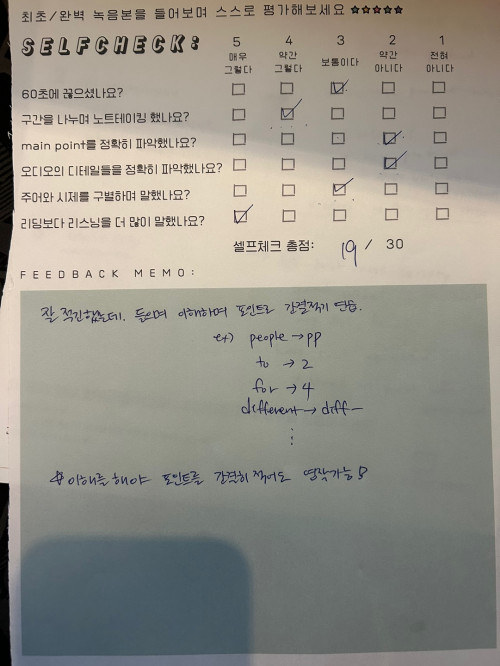 최초/완벽 녹음본을 들어보며 스스로 평가해보세요 ☆☆☆☆☆
SELFCHECK:
5 4 3 2 1
매우 그렇다 약간 그렇다 보통이다 약간 아니다 전혀 아니다
60초에 끊으셨나요?
구간을 나누며 노트테이킹 했나요?
main point를 정확히 파악했나요?
오디오의 디테일들을 정확히 파악했나요?
주어와 시제를 구별하며 말했나요?
리딩보다 리스닝을 더 많이 말했나요?
셀프체크 총점: 19 / 30
FEEDBACK MEMO:
잘 적긴했는데. 들으며 이해하며 포인트로 간결적기 연습.
ex) people → pp
to → 2
for → 4
different → diff
이해를 해야 포인트를 간결히 적어도 영작가능